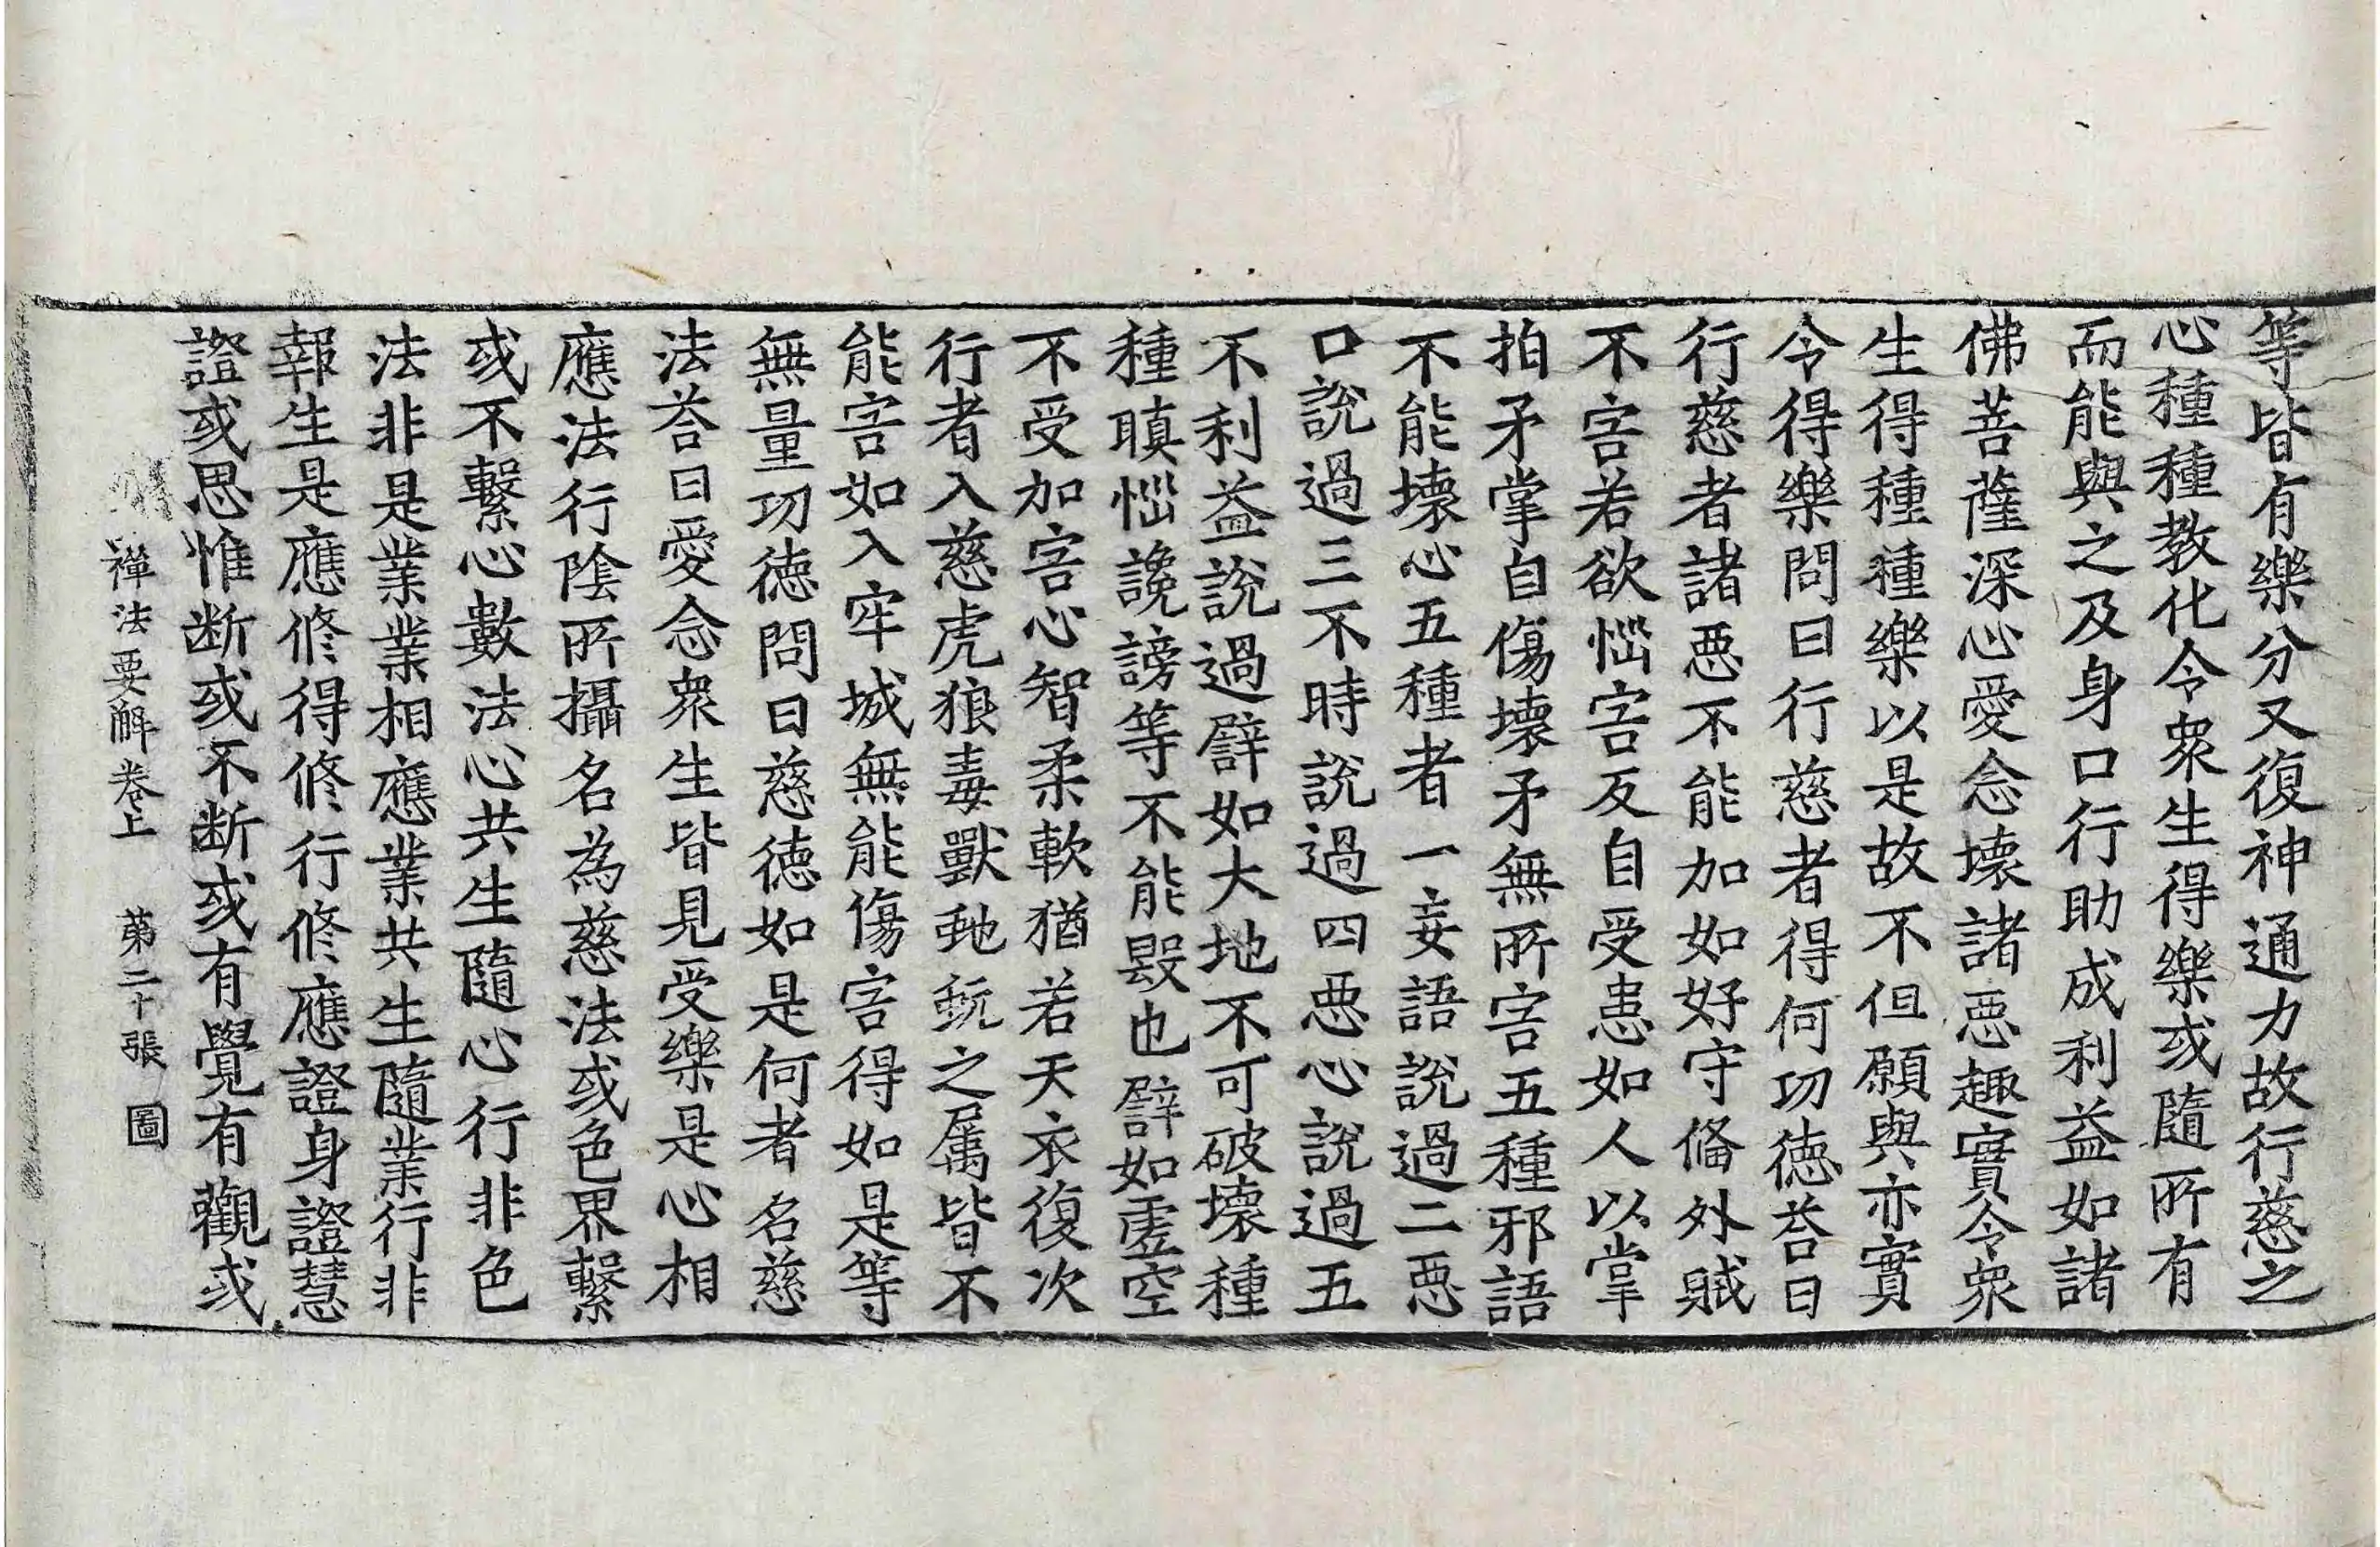 等皆有樂分又復神通力故行慈之
心種種教化令衆生得樂或隨所有
而能與之及身口行助成利益如諸
佛菩薩深心愛念壞諸惡趣實令衆
生得種種樂以是故不但願與亦實
令得樂問曰行慈者得何功德荅曰
行慈者諸惡不能加如好守俻外賊
不害若欲惱害反自受患如人以掌
拍矛掌自傷壞矛無所害五種邪語
不能壞心五種者一妄語說過二惡
口說過三不時說過四惡心說過五
不利益說過譬如大地不可破壞種
種瞋惱讒謗等不能毀也譬如虛空
不受加害心智柔軟猶若天衣復次
行者入慈虎狼毒獸虵蚖之屬皆不
能害如入牢城無能傷害得如是等
無量功德問曰慈德如是何者名慈
法荅曰愛念衆生皆見受樂是心相
應法行陰所攝名為慈法或色界繫
或不繫心數法心共生隨心行非色
法非是業業相應業共生隨業行非
報生是應修得修行修應證身證慧
證或思惟断或不断或有覺有觀或
禪法要解卷上　第二十張　圖